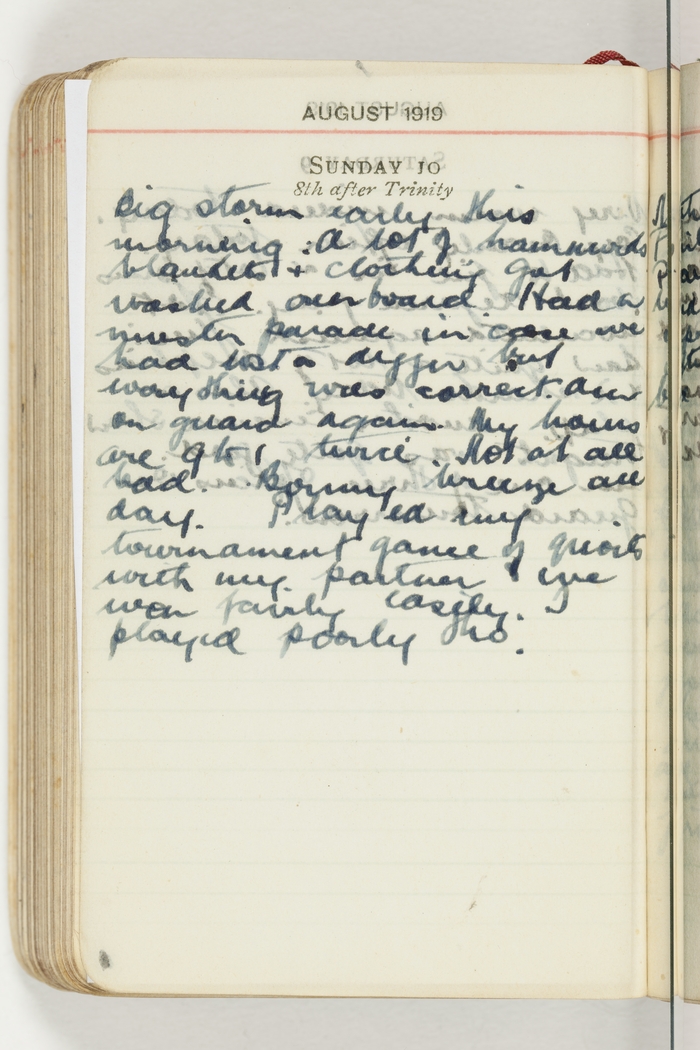 AUGUST 1919
SUNDAY 10
8th after Trinity
Big storm early this
morning. A lot of hammocks
blankets + clothing got
washed overboard. Had a
muster parade in case we
had lost a digger but
everything was correct. Am
on guard again. My hours
are 9 to 1, twice. Not at all
bad. Bonny breeze all
day. Played my
tournament game of quoits
with my partner & we
won fairly easily. I
played poorly tho.